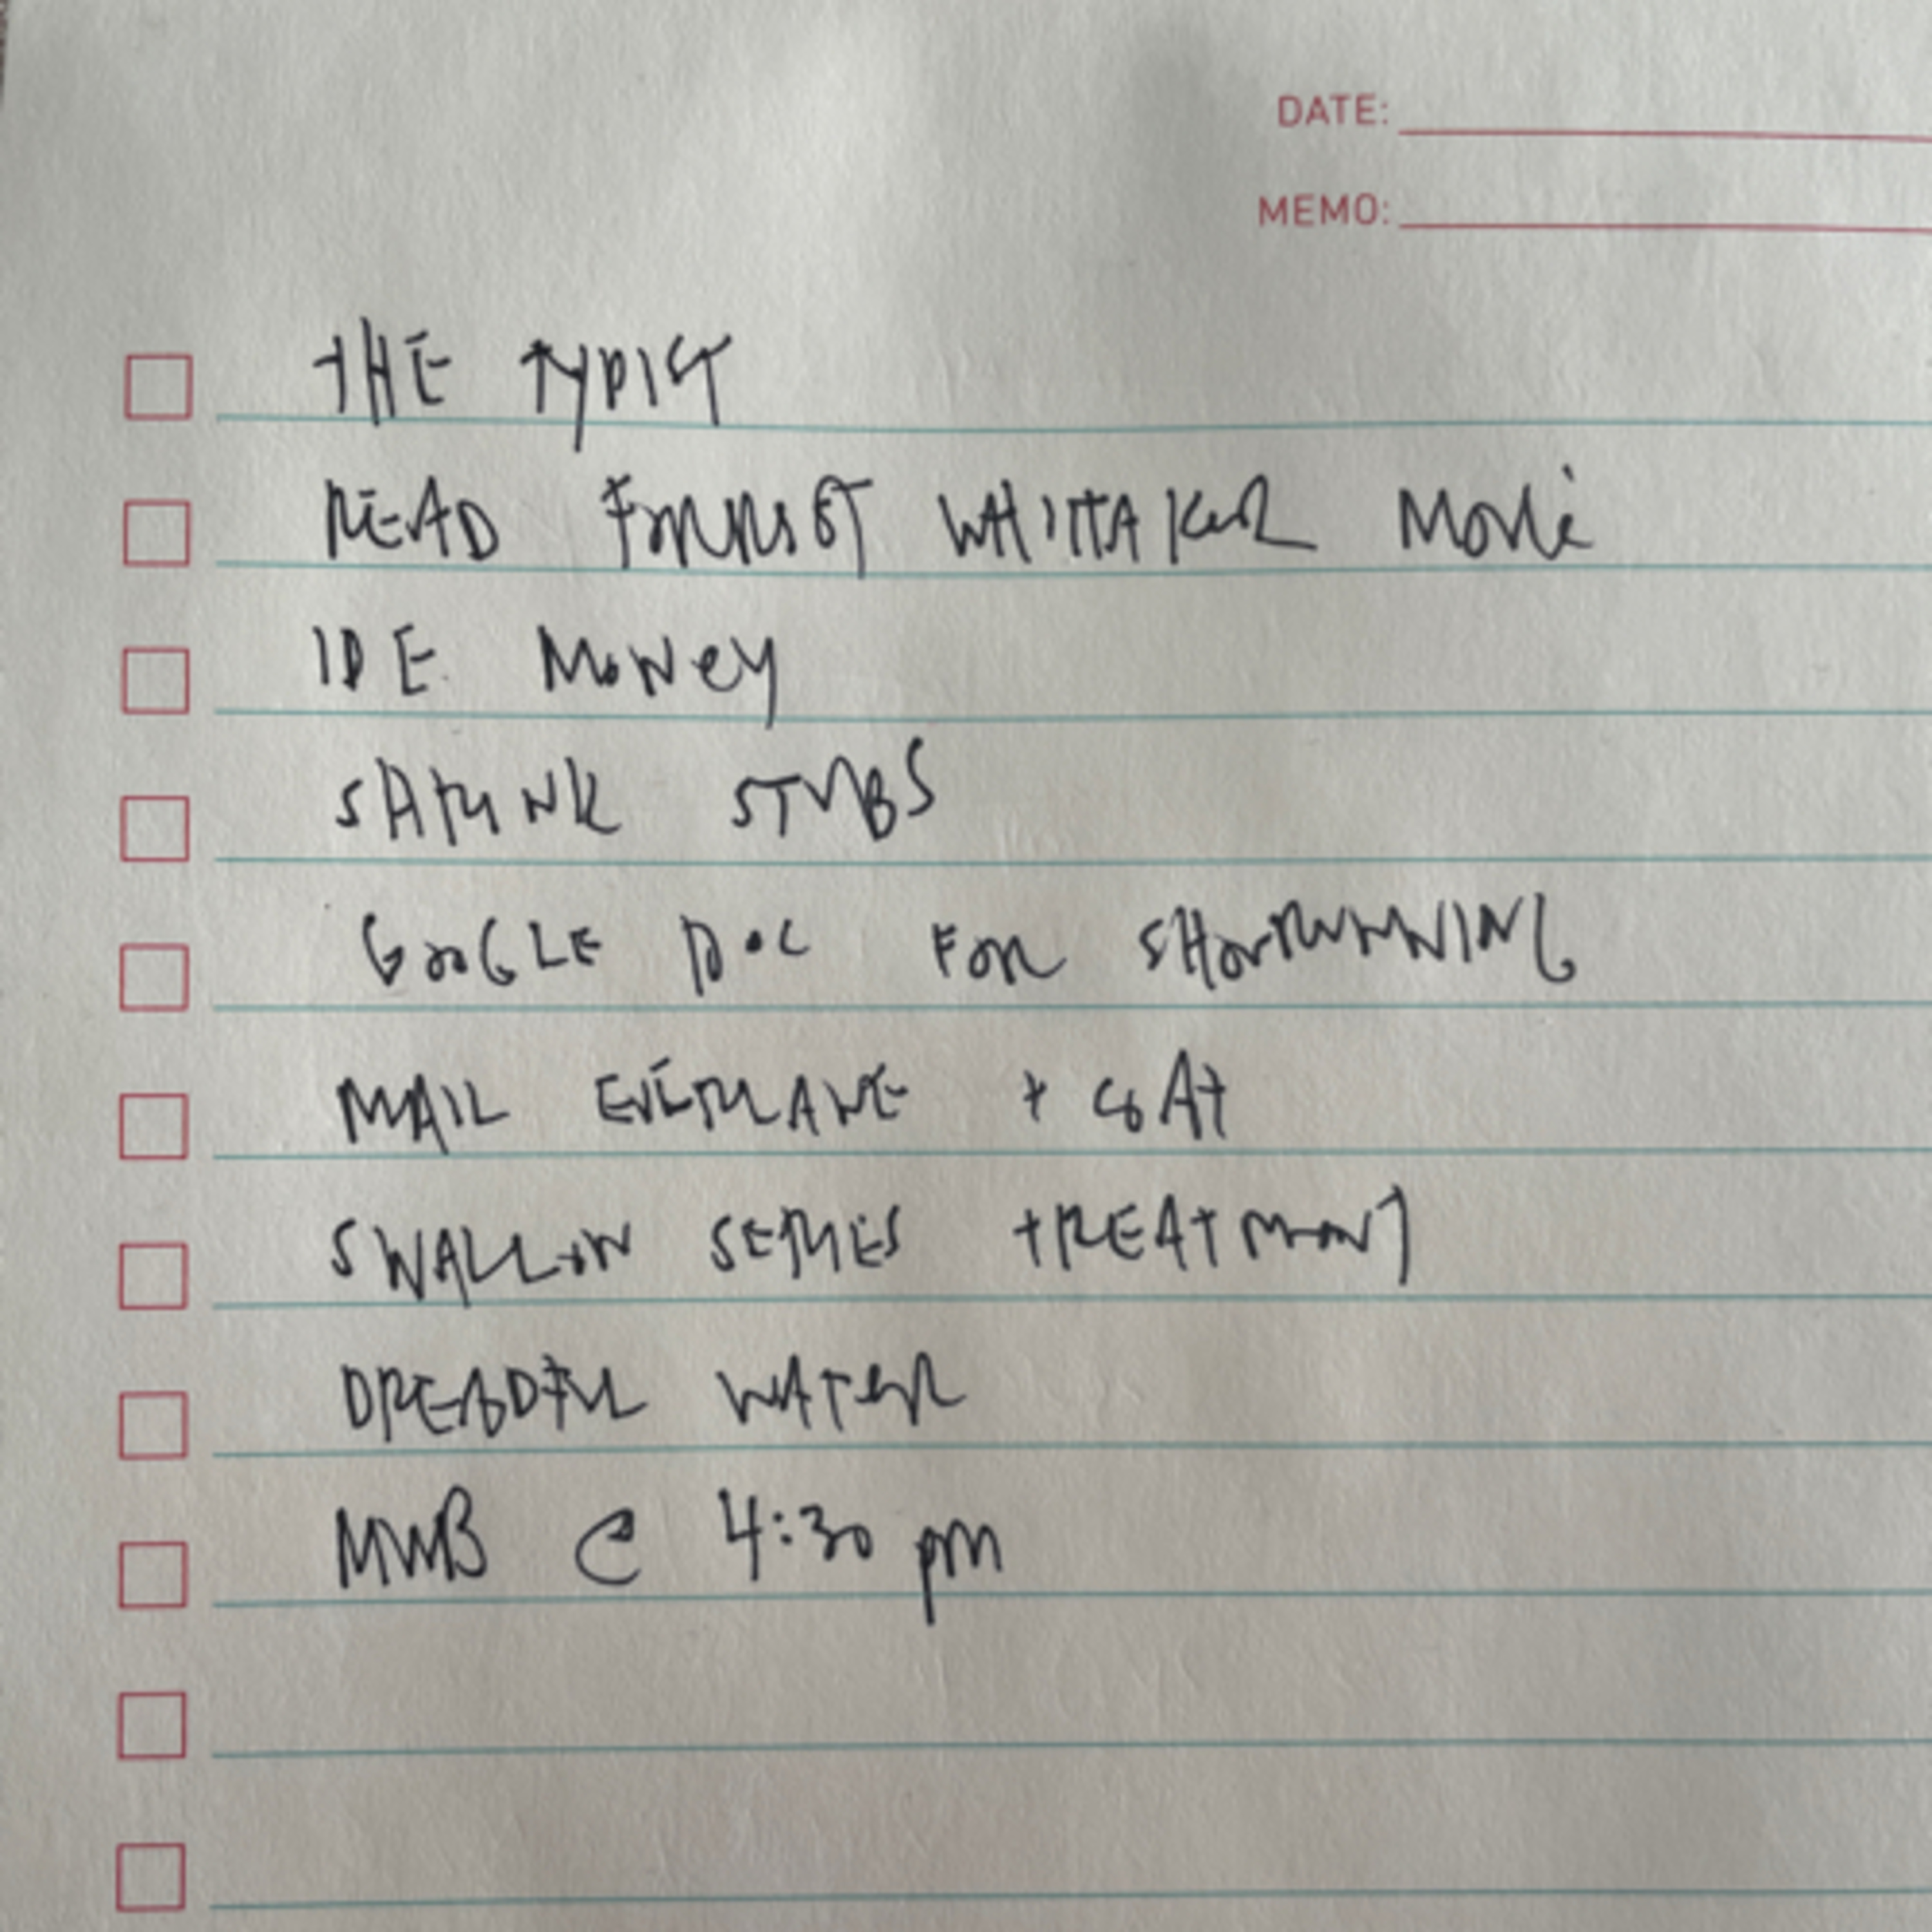 DATE:
MEMO:
THE TYPIST
READ FORREST WHITTAKER MOVIE
IDE MONEY
STUBS
GOOGLE DOC FOR SHOWRUNNING
MAIL EVERLANE + COAT
SWALLOW SERIES TREATMENT
DREADFUL WATER
MWB @ 4:30 pm